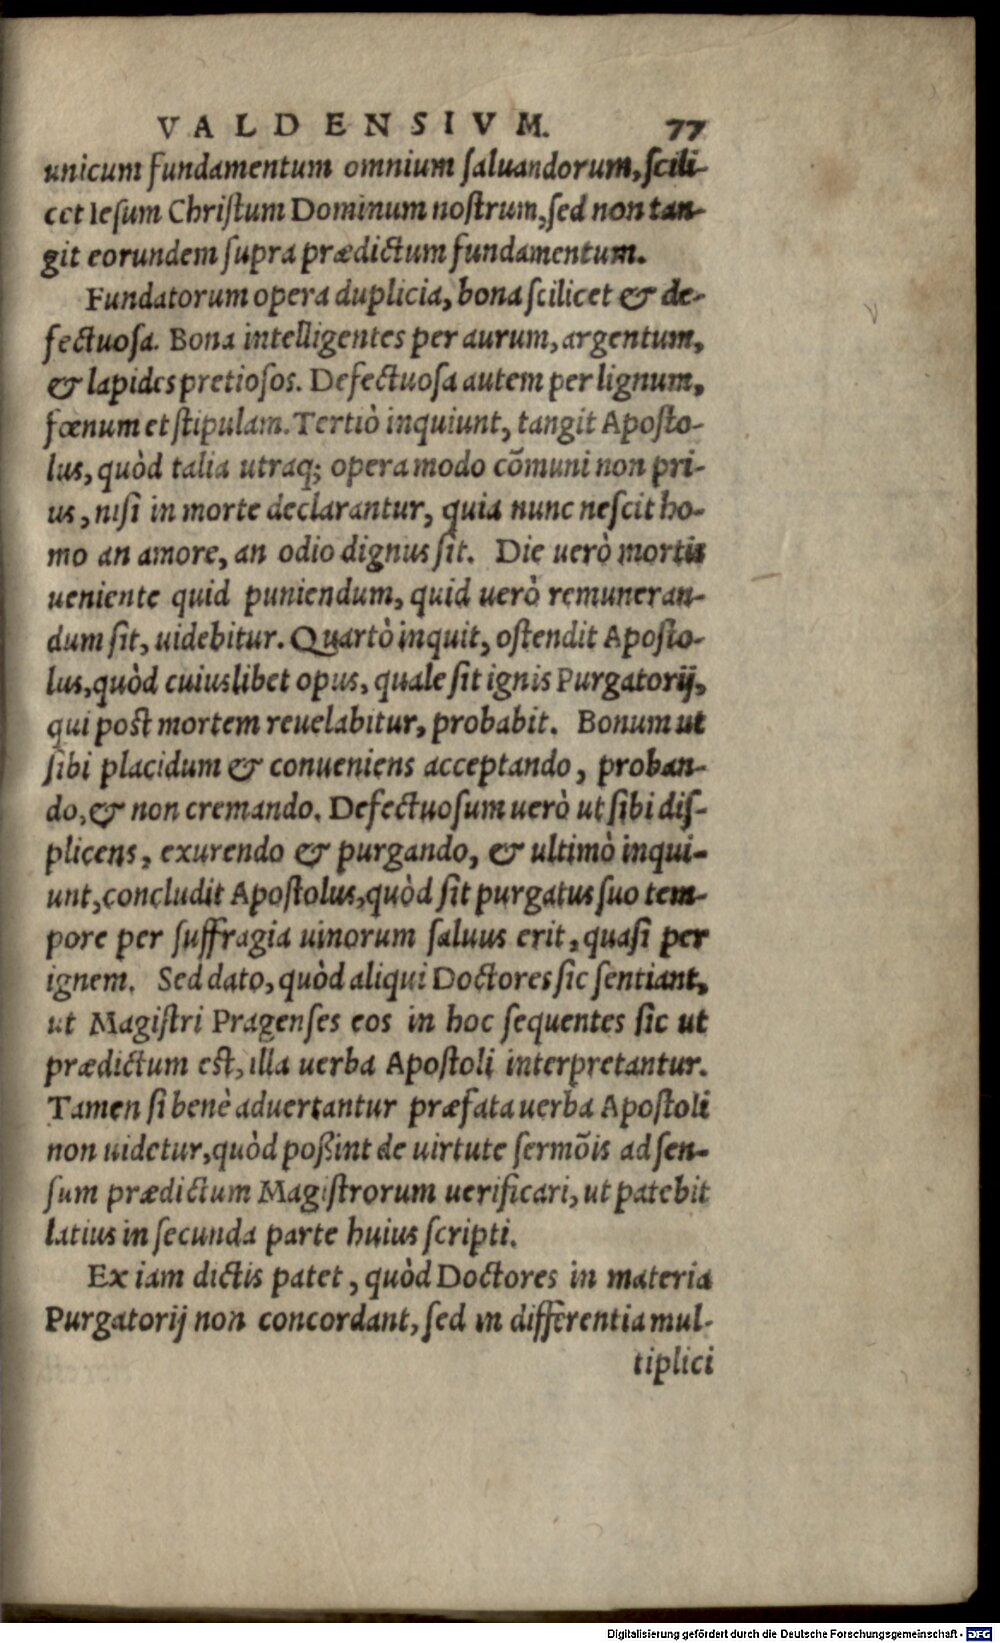 VALDENSIVM. 77
unicum fundamentum omnium ſaluandorum, ſcili-
cet Ieſum Chriſtum Dominum noſtrum, ſed non tan-
git eorundem ſupra prædictum fundamentum.
Fundatorum opera duplicia, bona ſcilicet & de-
fectuoſa. Bona intelligentes per aurum, argentum,
& lapides pretioſos. Defectuoſa autem per lignum,
fœnum et ſtipulam. Tertiò inquiunt, tangit Apoſto-
lus, quòd talia utraq; opera modo cõmuni non pri-
us, niſi in morte declarantur, quia nunc neſcit ho-
mo an amore, an odio dignus ſit. Die uerò mortis
ueniente quid puniendum, quid uerò remuneran-
dum ſit, uidebitur. Quartò inquit, oſtendit Apoſto-
lus, quòd cuiuslibet opus, quale ſit ignis Purgatorij,
qui poſt mortem reuelabitur, probabit. Bonum ut
ſibi placidum & conueniens acceptando, proban-
do, & non cremando. Defectuoſum uerò ut ſibi diſ-
plicens, exurendo & purgando, & ultimò inqui-
unt, concludit Apoſtolus, quòd ſit purgatus ſuo tem-
pore per ſuffragia uinorum ſaluus erit, quaſi per
ignem. Sed dato, quòd aliqui Doctores ſic ſentiant,
ut Magiſtri Pragenſes eos in hoc ſequentes ſic ut
prædictum eſt, illa uerba Apoſtoli interpretantur.
Tamen ſi benè aduertantur præfata uerba Apoſtoli
non uidetur, quòd poßint de uirtute ſermõis ad ſen-
ſum prædictum Magiſtrorum uerificari, ut patebit
latius in ſecunda parte huius ſcripti.
Ex iam dictis patet, quòd Doctores in materia
Purgatorij non concordant, ſed in differentia mul-
tiplici
Digitalisierung gefördert durch die Deutsche Forschungsgemeinschaft - DFG